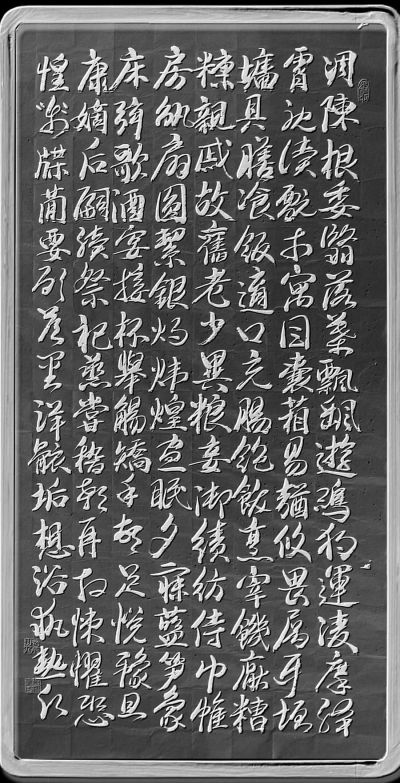 凋陳根委翳落葉飄颻遊鵾獨運凌摩絳
霄耽讀翫市寓目囊箱易輶攸畏屬耳垣
墻具膳飡飯適口充腸飽飫烹宰饑厭糟
糠親戚故舊老少異糧妾御績紡侍巾帷
房紈扇圓絜銀燭煒煌晝眠夕寐藍笋象
床弦歌酒宴接杯舉觴矯手頓足悅豫且
康嫡后嗣續祭祀蒸嘗稽顙再拜悚懼恐
惶牋牒簡要顧答審詳骸垢想浴執熱願